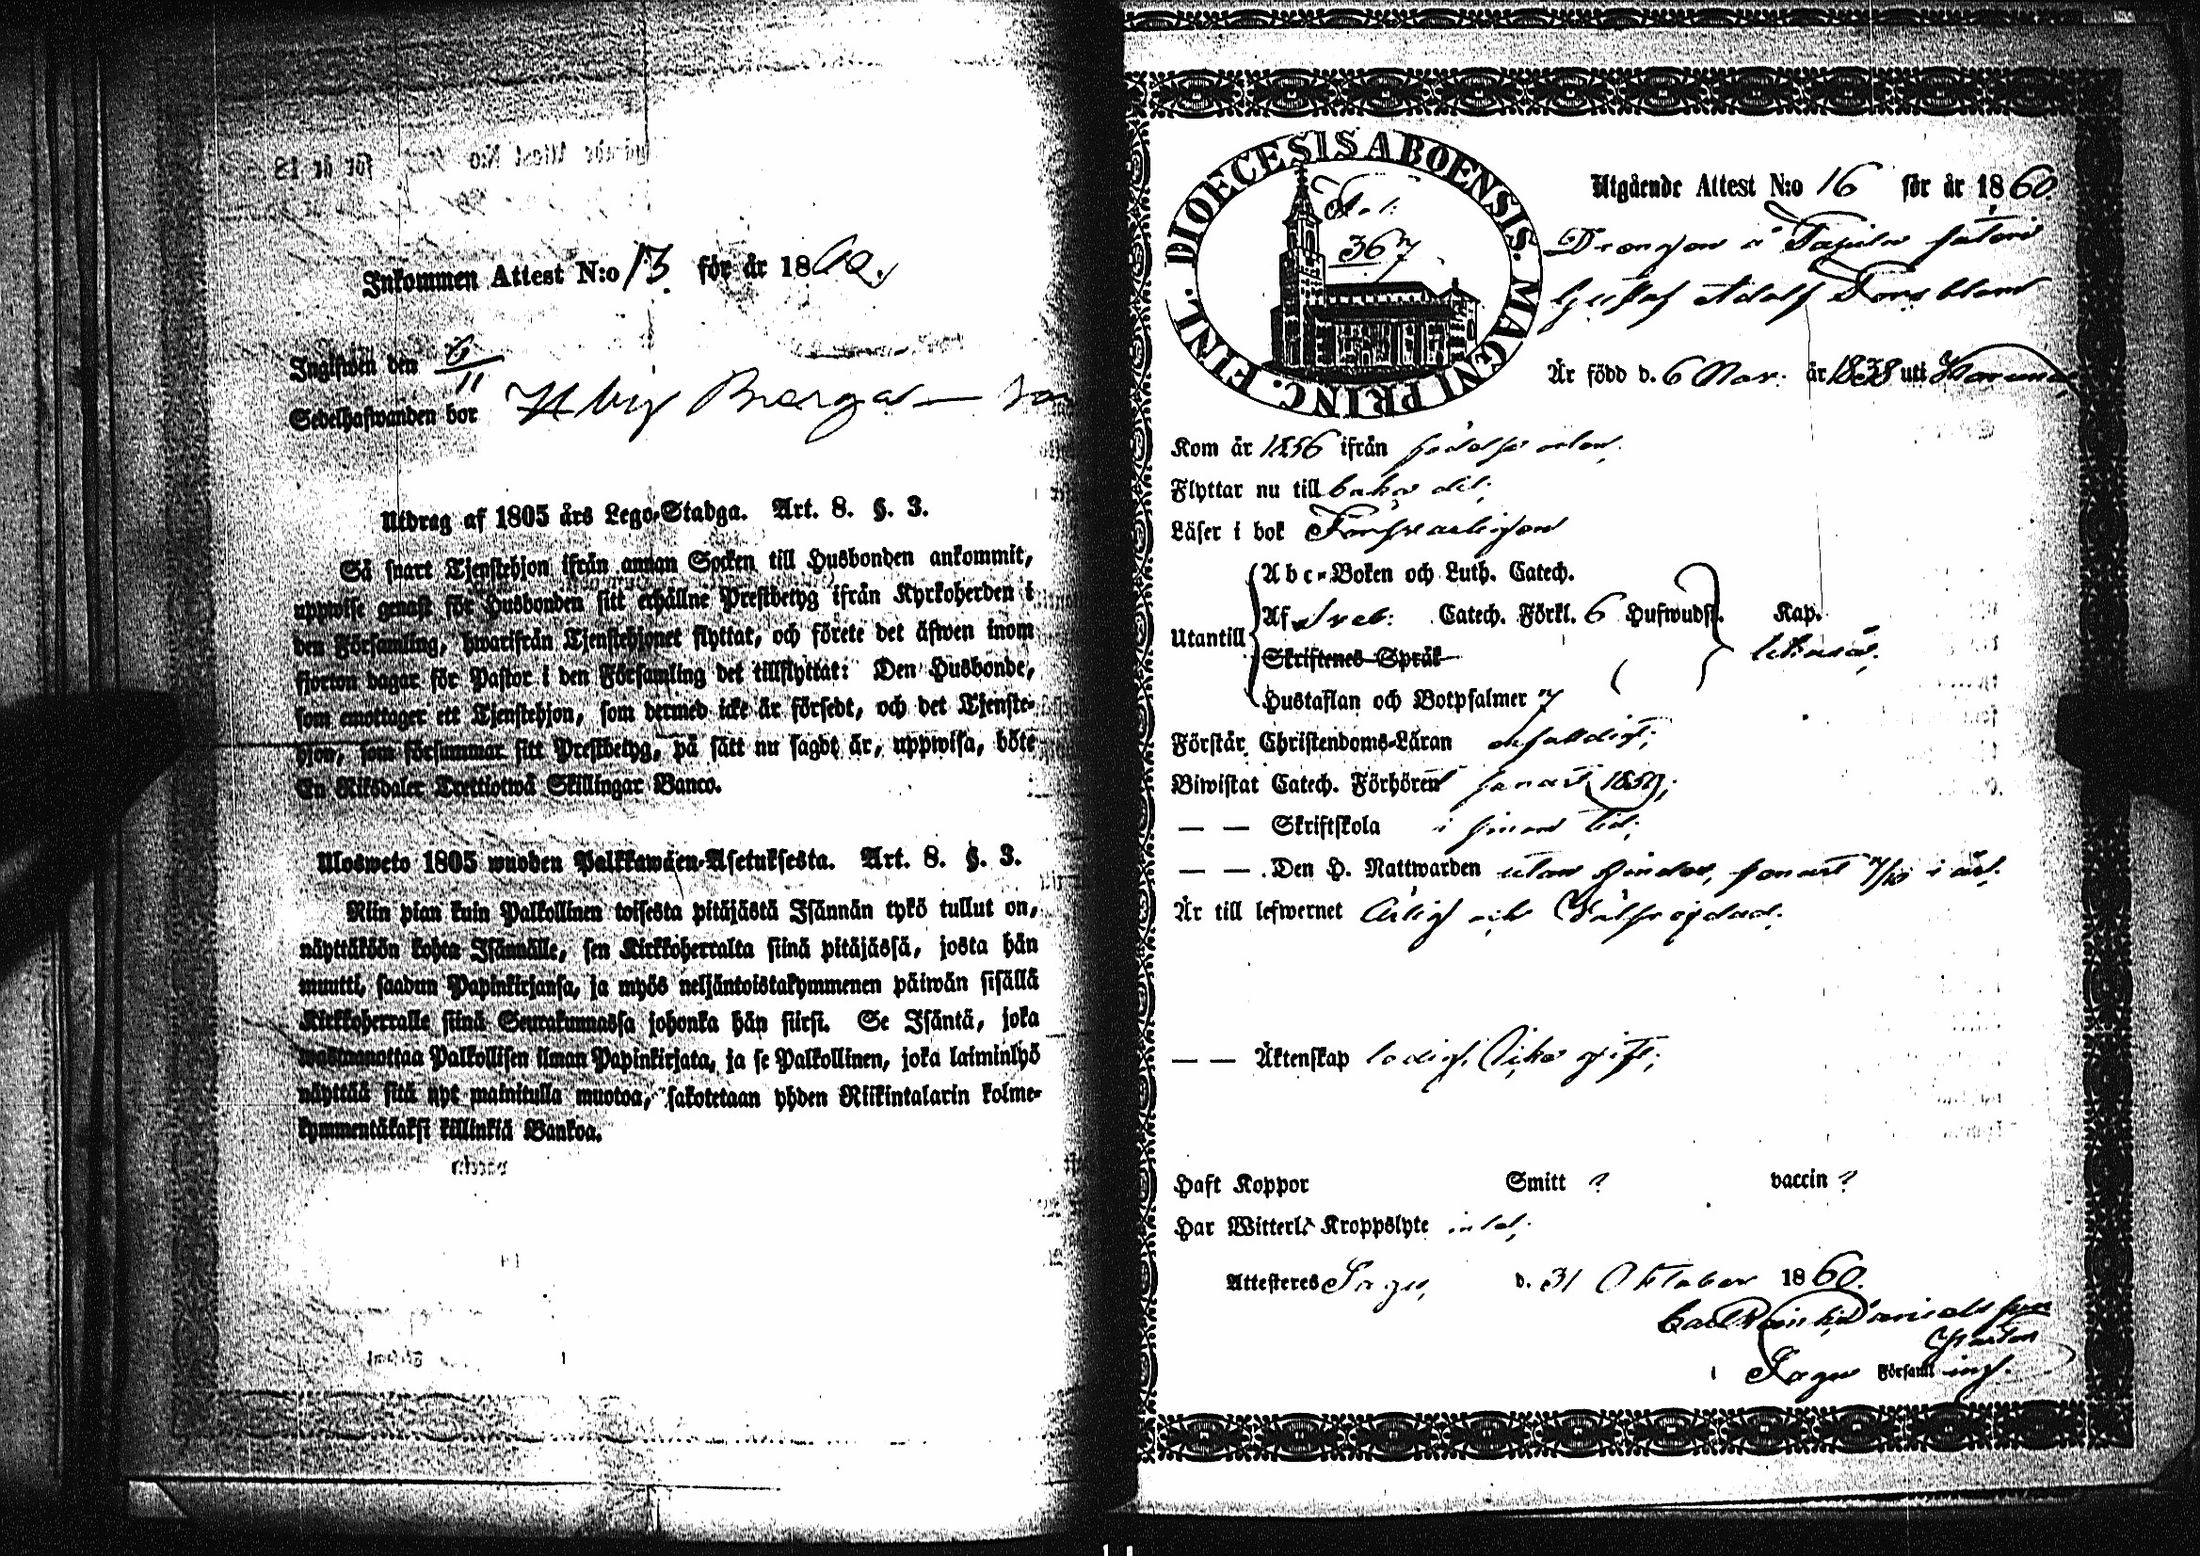 Inkommen Attest N:o 13 för år 1860.
Ingifwen den 6/11
Sedelhafwanden bor
Utdrag af 1805 års Lego-Stadga. Art. 8. §. 3.
Så snart Tjenstehjon ifrån annan Socken till Husbonden ankommit,
uppwise genast för Husbonden sitt erhållne Prestbetyg ifrån Kyrkoherden i
den Församling, hwarifrån Tjenstehjonet flyttat, och förete det äfwen inom
fjorton dagar för Pastor i den Församling det tillflyttat: Den Husbonde,
som emottager ett Tjenstehjon, som dermed icke är försedt, och det Tjenste-
hjon, som försummar sitt Prestbetyg, på sätt nu sagdt är, uppwisa, böte
En Riksdaler Trettiotwå Skillingar Banco.
Ulosweto 1805 wuoden Palkkawäen-Asetuksesta. Art. 8. §. 3.
Niin pian kuin Palkollinen toisesta pitäjästä Isännän tykö tullut on,
näyttäköön kohta Isännälle, sen Kirkkoherralta siinä pitäjässä, josta hän
muutti, saadun Papinkirjansa, ja myös neljäntoistakymmenen päiwän sisällä
Kirkkoherralle siinä Seurakunnassa johonka hän siirsi. Se Isäntä, joka
wastaanottaa Palkollisen ilman Papinkirjata, ja se Palkollinen, joka laiminlyö
näyttää sitä nyt mainitulla muotoa, sakotetaan yhden Riikintalarin kolme-
kymmentäkaksi killinkiä Bankoa.
DIOECESIS ABOENSIS. MAGNI PRINC. FINL.
Fol:
367
Utgående Attest N:o 16 för år 1860.
Drengen å
Gustaf Adolf
Är född d. 6 Nov: år 1838 uti
Kom år 1856 ifrån födelseorten;
Flyttar nu till baka dit;
Läser i bok Försvarligen
Utantill
Abc-Boken och Luth. Catech.
Af Sveb: Catech. Förkl. 6 Hufwudst. Kap.
Skriftenes Språk
Hustaflan och Botpsalmer 7
Förstår Christendoms-Läran enfaldigt;
Biwistat Catech. Förhören senast 1859;
— — Skriftskola i sinom tid;
— — Den H. Nattwarden utan hinder, senast 7/10 i år.
Är till lefwernet Ärlig och Välfrejdad.
— — Äktenskap ledig. Icke gift;
Haft Koppor Smitt ? vaccin ?
Har Witterl. Kroppslyte intet;
Attesteres Sagu, d. 31 Oktober 1860.
Pastor
i Sagu Församling.